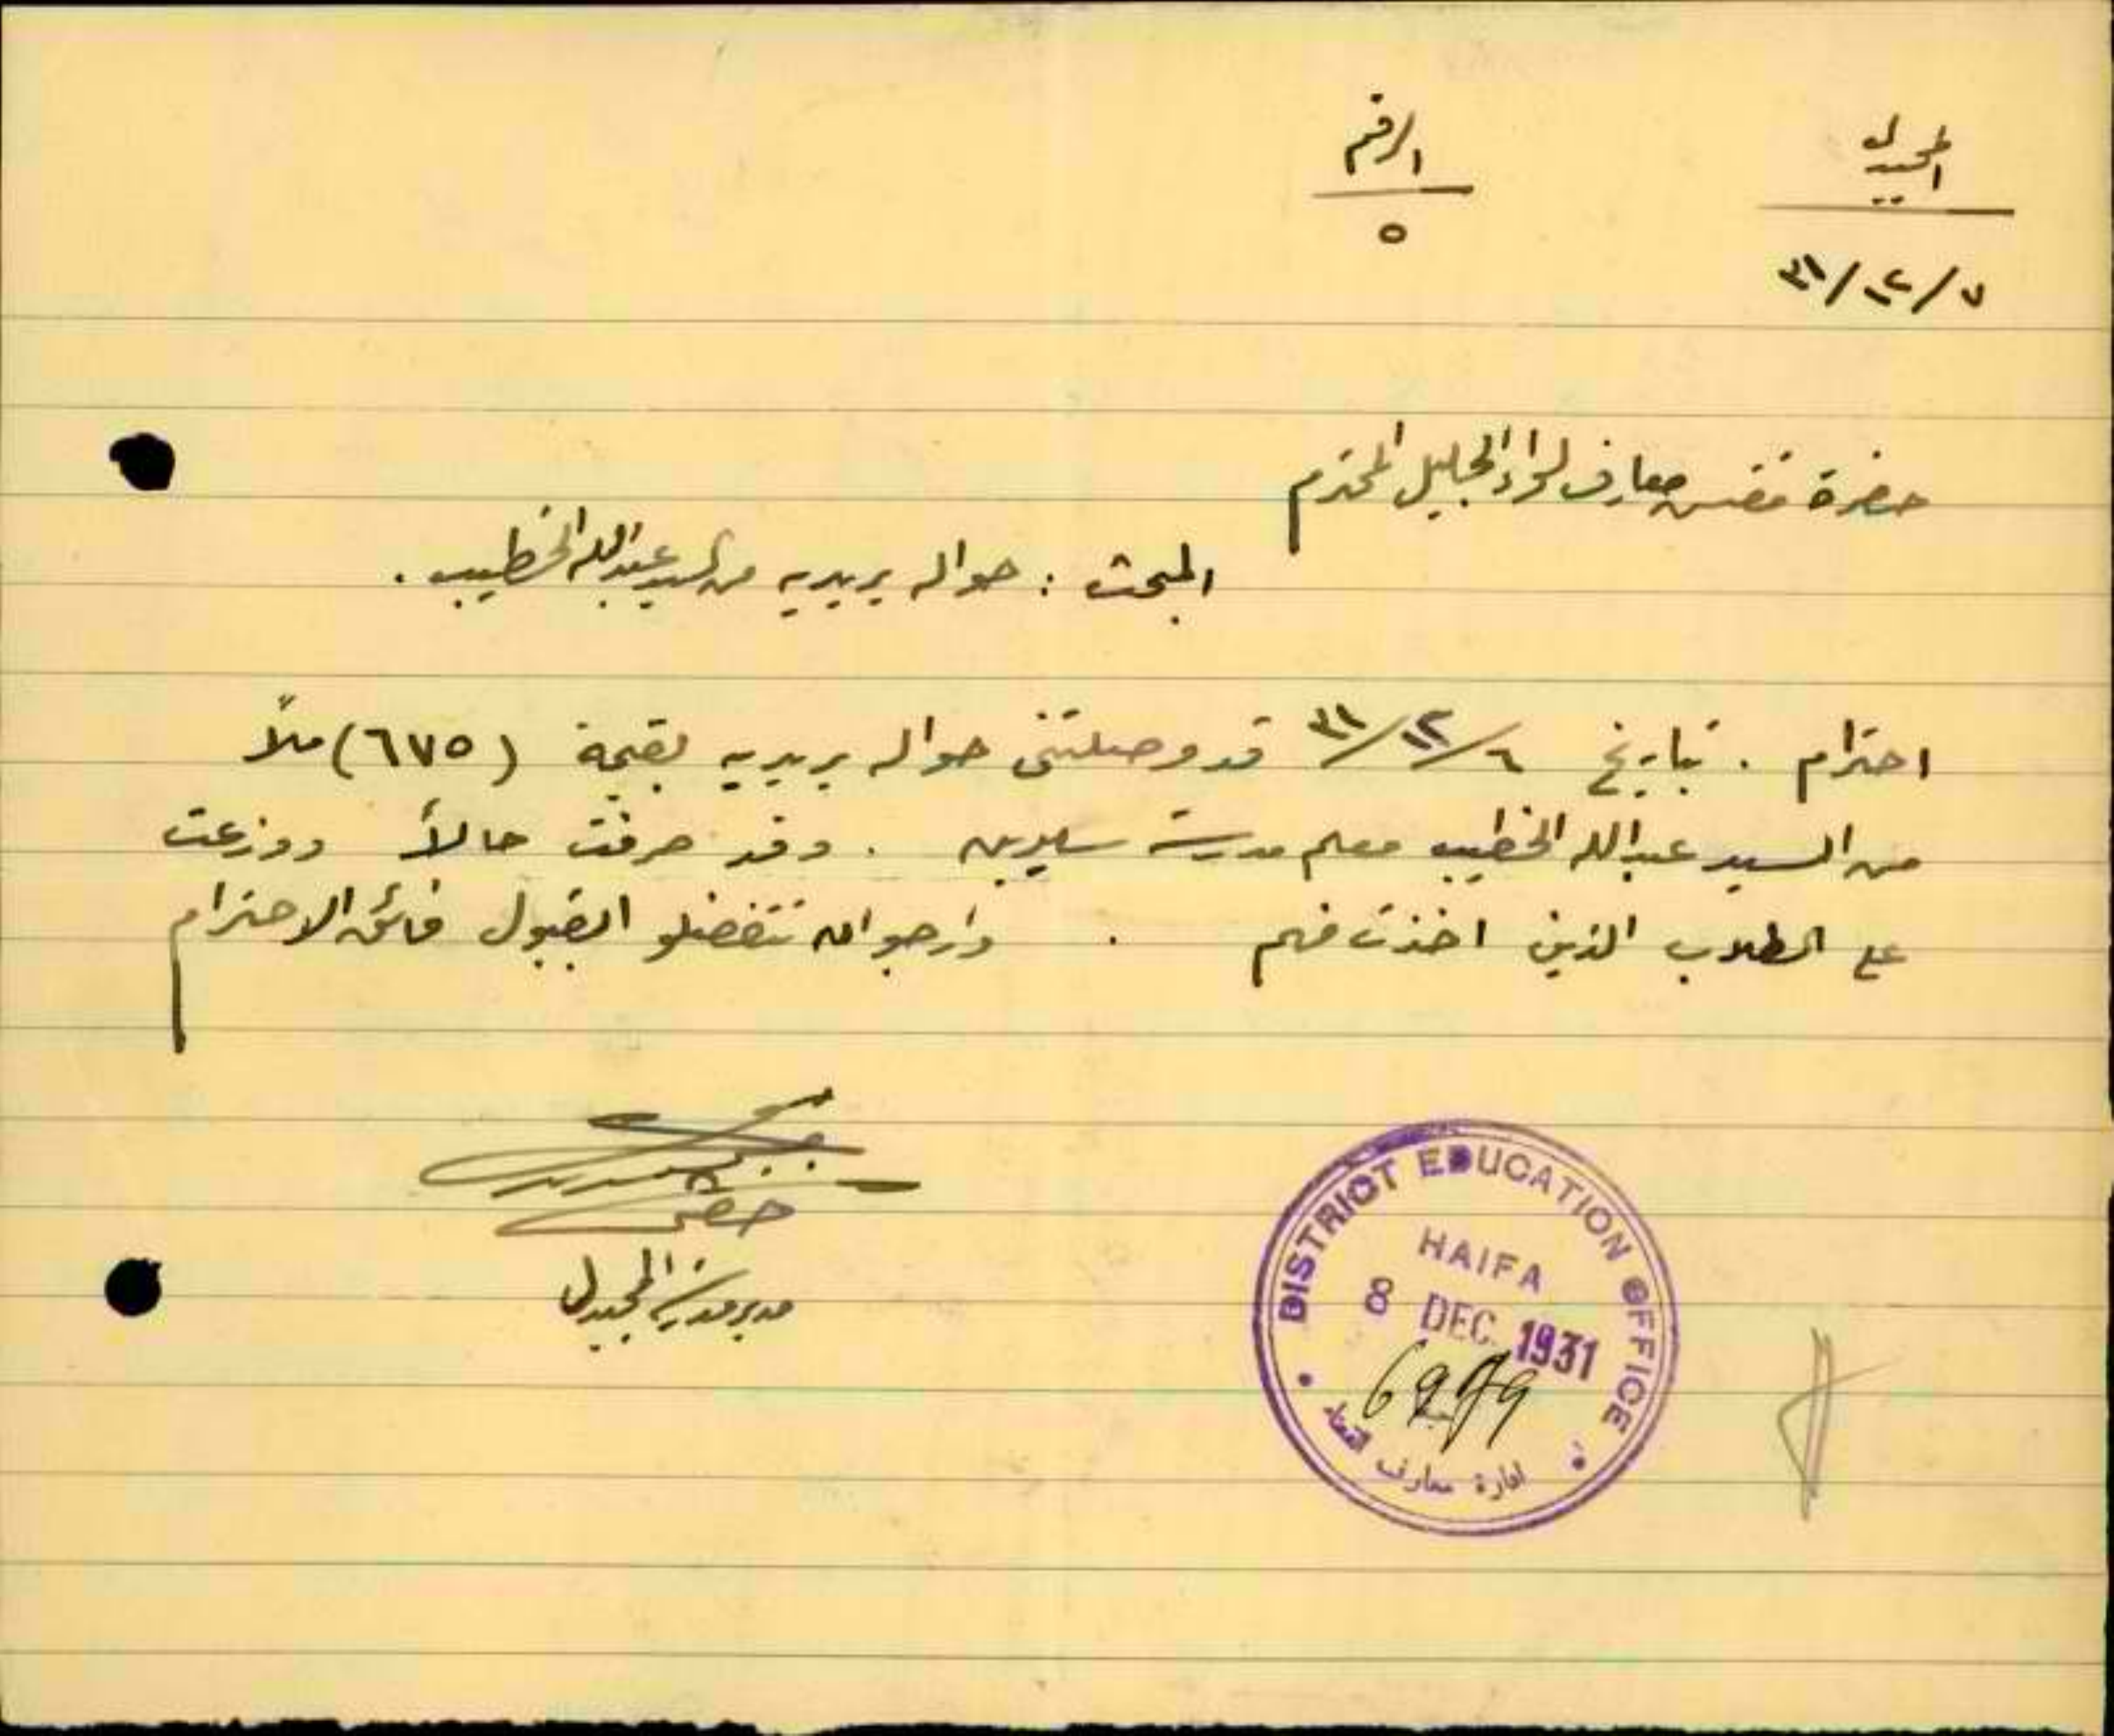 المجيدل
الرقم
٥
٧/١٢/٣١
حضرة مفتش معارف لواء الجليل المحترم
المبحث : حواله بريديه من السيد عبدالله الخطيب .
احترام . بتاريخ ٦/١٢/٣١ قد وصلتني حواله بريديه بقيمة (٦٧٥) ملاً
من السيد عبدالله الخطيب معلم مدرسة سيرين . وقد صرفت حالاً ووزعت
على الطلاب الذين اخذت منهم . وارجو ان تتفضلو بقبول فائق الاحترام
مدير مدرسة المجيدل
DISTRICT EDUCATION OFFICE
HAIFA
8 DEC 1931
ادارة معارف القضاء